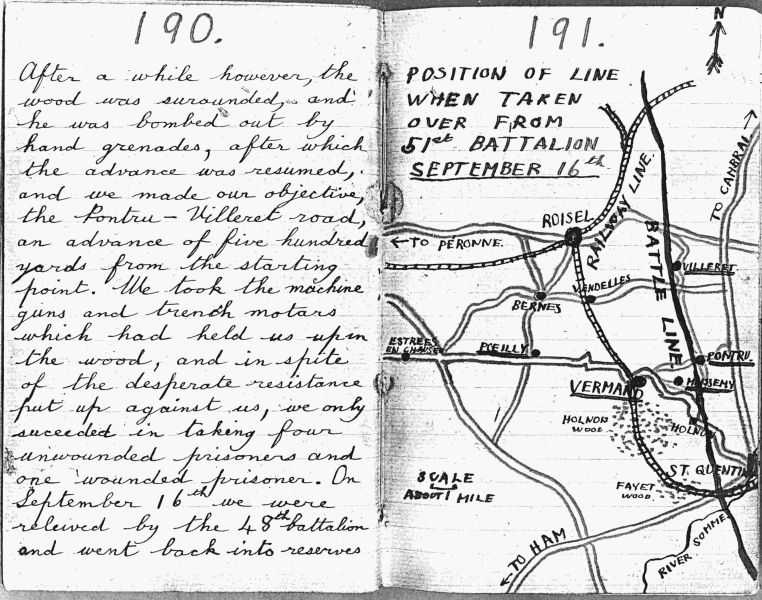 190.
After a while however, the
wood was surounded, and
he was bombed out by
hand grenades, after which
the advance was resumed,
and we made our objective,
the Pontru - Villeret road,
an advance of five hundred
yards from the starting
point. We took the machine
guns and trench motars
which had held us up in
the wood, and in spite
of the desperate resistance
put up against us, we only
suceeded in taking four
unwounded prisoners and
one wounded prisoner. On
September 16th we were
releived by the 48th battalion
and went back into reserves
191.
N
POSITION OF LINE
WHEN TAKEN
OVER FROM
51st BATTALION
SEPTEMBER 16th
TO CAMBRAI
RAILWAY LINE.
BATTLE LINE
ROISEL
← TO PERONNE.
VILLERET
VENDELLES
BERNES
ESTREES
EN CHAUSE
POEILLY
PONTRU
VERMAND
HOLNON
WOOD
HOLNON
ST. QUENTIN
FAYET
WOOD
SCALE
ABOUT 1 MILE
← TO HAM
RIVER SOMME